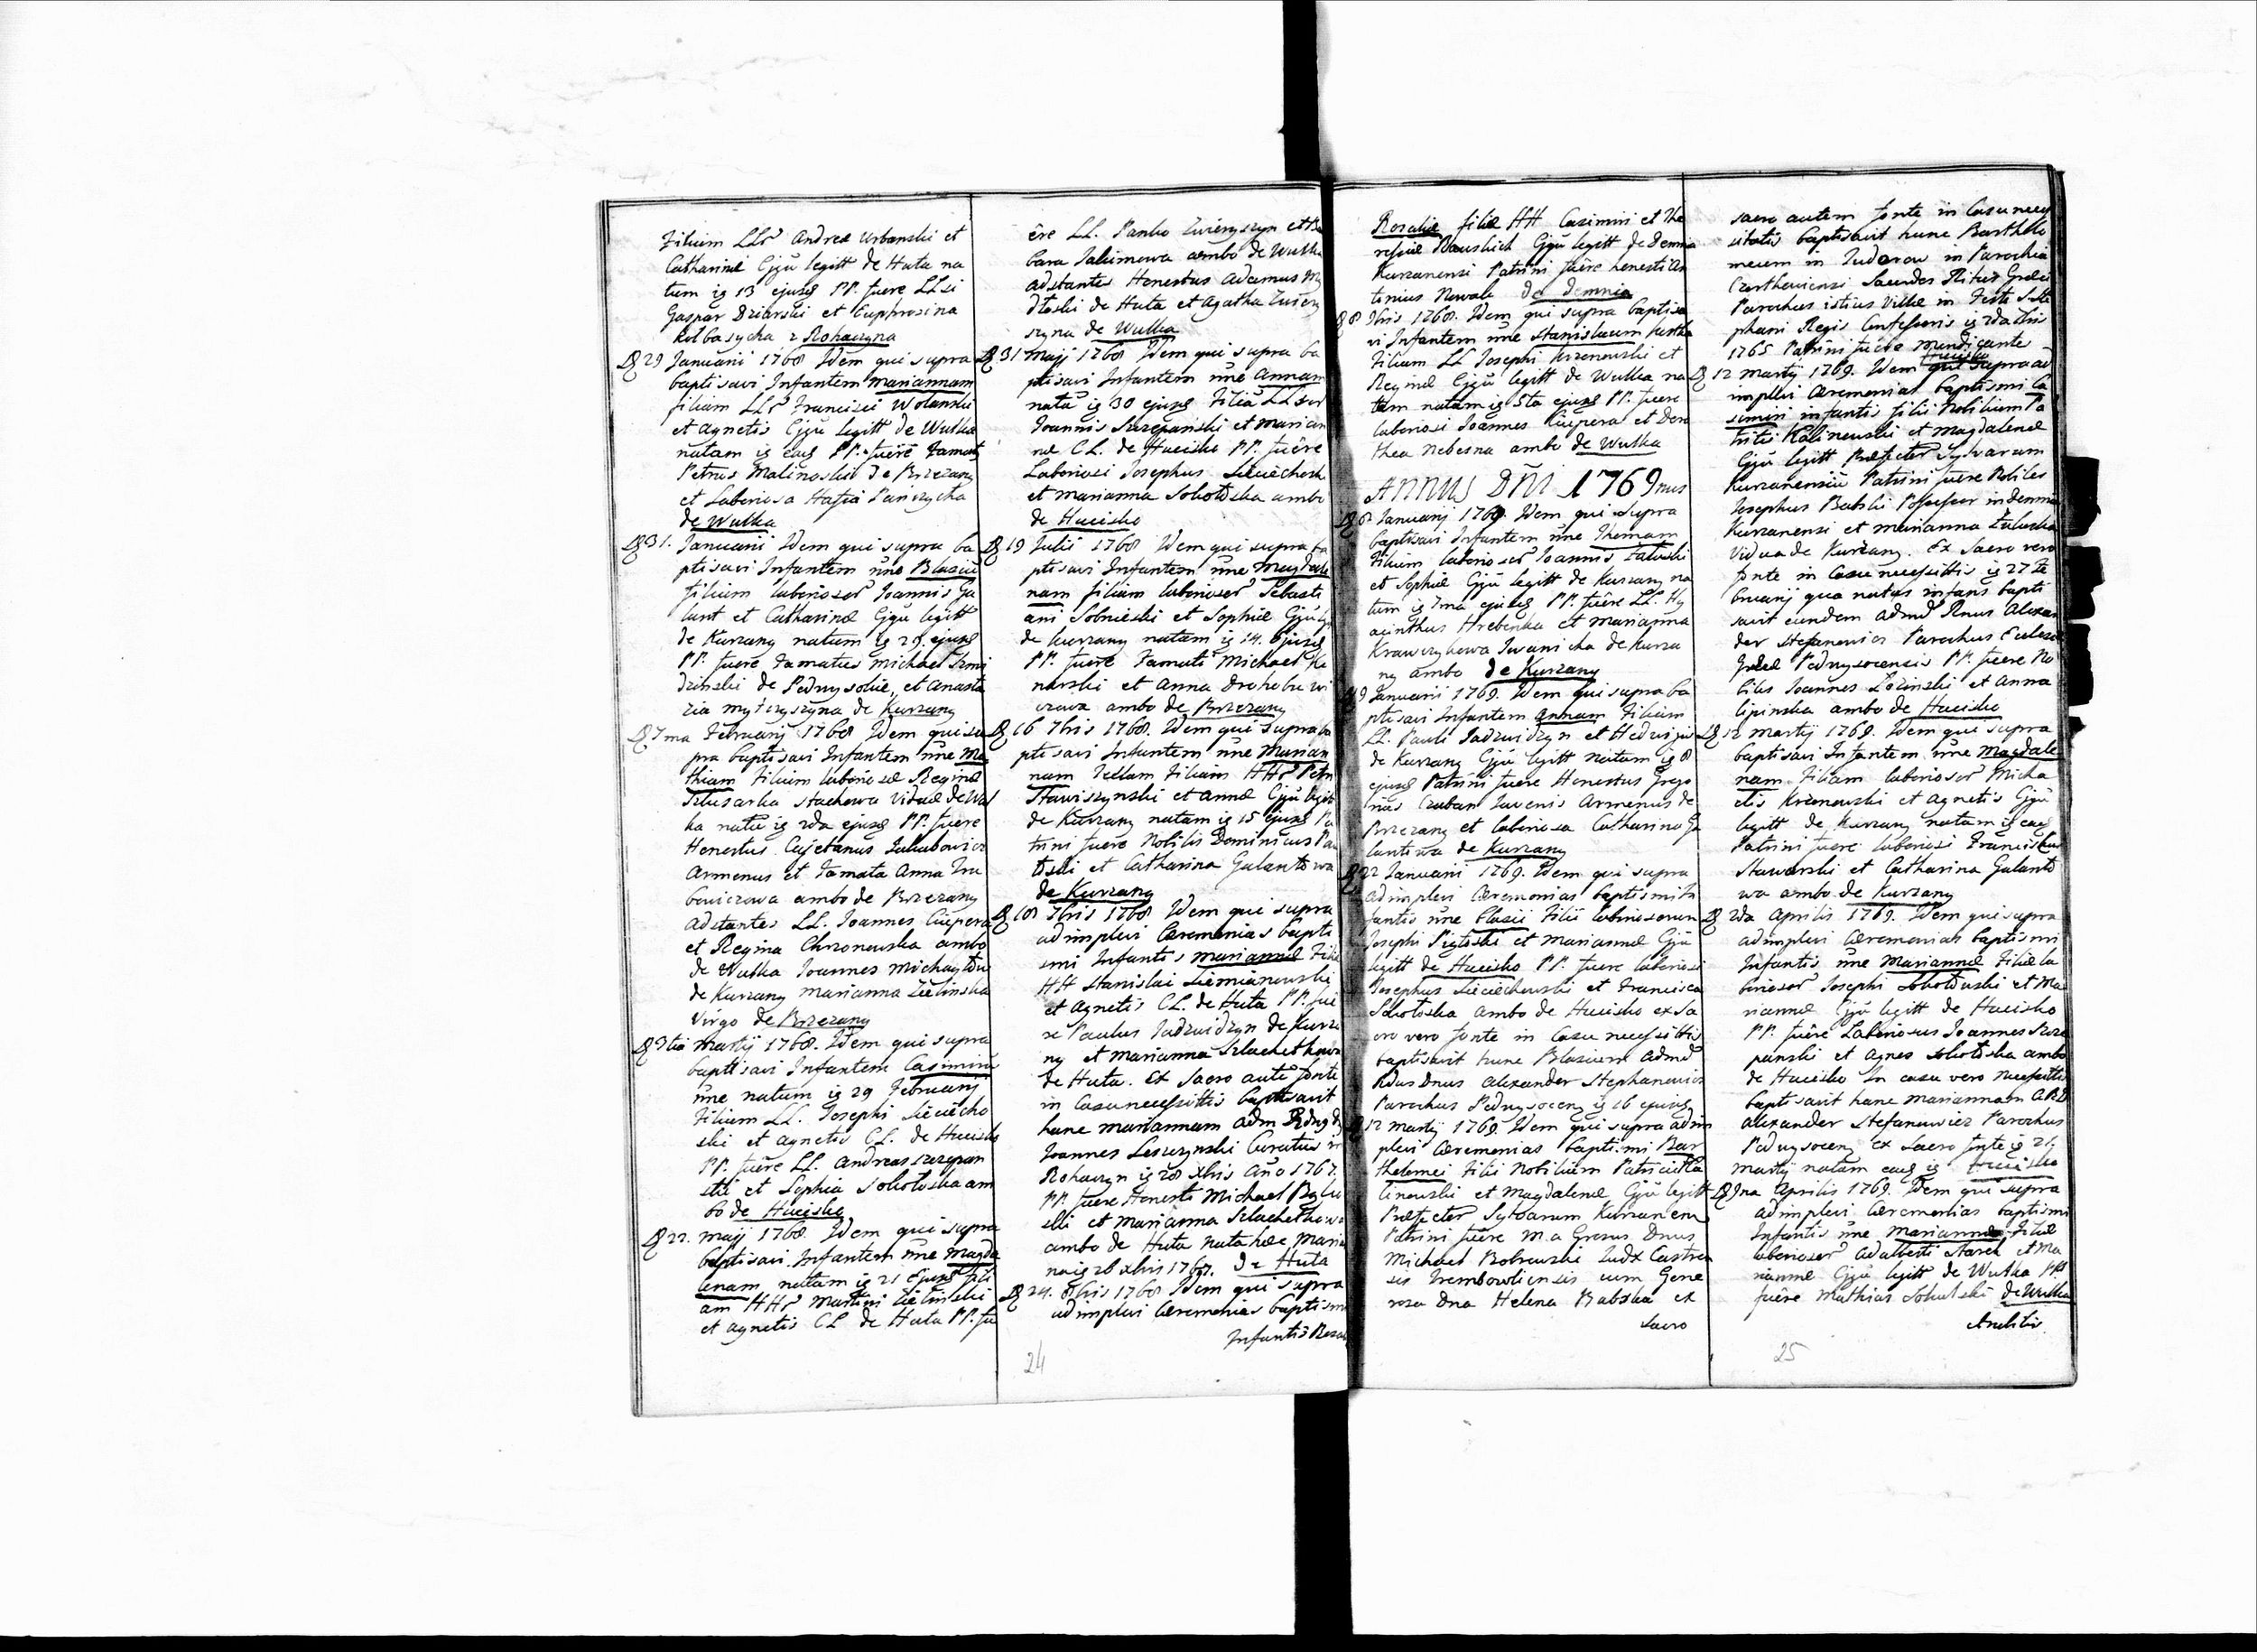 Filium LLr Andreæ Urbanski et
Catharinæ Cjgũ legitt de Huta na
tum ig 13 ejusq PP. fuere LLsi
Gaspar Dziarski et Euphrosina
Kolbasycha z Rohaczyna
29 Januarii 1768 Idem qui supra
baptisavi Infantem Mariannam
filiam LLr Francisci Wolanski
et Agnetis Cjgũ legitt de Wulka
natam ig eaq PP. fuere Famat
Petrus Malinoski de Brzezany
et Laboriosa Hasia Panczycha
de Wulka
31. Januarii Idem qui supra ba
ptisavi Infantem ũne Blasiũ
filium laboriosor Joannis Ga
lant et Catharinæ Cjgũ legitt
de Kurzany natum ig 29. ejusq
PP. fuere Famatus Michael
dzinski de Podwysokie, et Anasta
zia de Kurzany
7ma Februarij 1768 Idem qui su
pra baptisavi Infantem ũne Ma
thiam Filium laboriosæ Reginæ
Slusarka Stachowa Viduæ de Wul
ka natũ ig 2da ejusq PP. fuere
Honestus Cajetanus Jakubowicz
Armenus et Famata Anna
bowiczowa ambo de Brzezany
Adstantes LL. Joannes Ciupera
et Regina Chrzonowska ambo
de Wulka Joannes
de Kurzany Marianna Zielinska
Virgo de Brzezany
3tia Martij 1768. Idem qui supra
baptisavi Infantem Casimirũ
ũne natum ig 29 Februarij
Filium LL. Josephi Sieciecho
ski et Agnetis CL. de Hucisko
PP. fuere LL. Andreas Szczepan
ski et Sophia Sokołoska am
bo de Hucisko
22. Maij 1768. Idem qui supra
baptisavi Infantem ũne Magda
lenam natam ig 21 ejusq fili
am HHr Martini Zielinski
et Agnetis CL de Huta PP. fu
ére LL. Panko Zwierzyszyn et Ba
bara Jakimowa ambo de Wulka
Adstantes Honestus Adamus
de Huta et Agatha
szyna de Wulka
31 Maij 1768 Idem qui supra ba
ptisavi Infantem ũne Annam
natã ig 30 ejusq Filiã LLsor
Joannis Szczepanski et Marian
næ CL. de Hucisko PP. fuére
Laboriosi Josephus Sieciechoski
et Marianna Sokołoska ambo
de Hucisko
19 Julii 1768 Idem qui supra ba
ptisavi Infantem ũne Magdale
nam filiam laboriosor Sebasti
ani Sobnieski et Sophiæ Cjgũ
de Kurzany natam ig 14. ejusq
PP. fuére Famati Michael Ko
narski et Anna
czowa ambo de Brzezany
16 7bris 1768. Idem qui supra ba
ptisavi Infantem ũne Marian
nam Filiam HHr Petri
Stawiszynski et Annæ Cjgũ legitt
de Kurzany natam ig 15 ejusq Pa
trini fuere Nobilis Dominicus
et Catharina Galantowa
de Kurzany
18 7bris 1768 Idem qui supra
adimplevi Cæremonias bapti
smi Infantis Mariannæ Filiæ
HH Stanislai Siemianowski
et Agnetis CL. de Huta PP. fue
re Paulus Jadzwidzyn de Kurza
ny et Marianna Szlachethowa
de Huta. Ex Sacro autẽ fonte
in Casu necessittis baptisavit
hanc Mariannam Adm Rdng D
Joannes Leszczynski Curatus in
Rohaczyn ig 28 Xbris Año 1767.
PP. fuere Honesti Michael
ski et Marianna Szlachethowa
ambo de Huta nata hæc Maria
na ig 26 Xbris 1767. De Huta
24. 8bris 1768 Idem qui supra
adimplevi Cæremonias baptismi
Infantis Rosal
24
Rosaliæ filiæ HH Casimiri et The
resiæ Cjgũ legitt de Demnia
Kurzanensi Patrini fuére honesti An
tonius Nowak de Demnia
8 9bris 1768. Idem qui supra baptisa
vi Infantem ũne Stanislaum Kostka
Filium LL Josephi Krzonowski et
Reginæ Cjgũ legitt de Wulka na
tum natam ig 5ta ejusq PP. fuere
laboriosi Joannes Ciupera et Doro
thea Nebesna ambo de Wulka
ANNUS DÑI 1769nus
8 Januarij 1769. Idem qui supra
baptisavi Infantem ũne Thomam
Filium laboriosor Joannis
et Sophiæ Cjgũ legitt de Kurzany na
tum ig 7ma ejusq PP. fuére LL. Hy
acinthus Hrebenka et Marianna
Krawczykowa Iwanicha de Kurza
ny ambo de Kurzany
9 Januarii 1769. Idem qui supra ba
ptisavi Infantem Annam Filiam
LL. Pauli Jadzwidzyn et Hedvigis
de Kurzany Cjgũ legitt natam ig 8
ejusq Patrini fuere Honestus Grego
rius Czuban Juvenis Armenus de
Brzezany et laboriosa Catharina Ga
lantowa de Kurzany
22 Januarii 1769. Idem qui supra
adimplevi Cæremonias baptismi In
fantis ũne Blasii Filii laboriosorum
Josephi et Mariannæ Cjgũ
legitt de Hucisko PP. fuere laboriosi
Josephus Siecichowski et Francisca
Sokołoska ambo de Hucisko ex Sa
cro vero fonte in Casu necessittis
baptisavit hunc Blasium Admd
Rdus Dnus Alexander Stephanowicz
Parochus Podwysocen ig 16 ejusq
12 Martij 1769. Idem qui supra adim
plevi Cæremonias baptismi Bar
tholomei Filii Nobilium Patricii Ka
linowski et Magdalenæ Cjgũ legitt
Præfector Sylvarum Kurzanen
Patrini fuére M.a Grosus Dnus
Michael Bobrowski Judx Castren
sis Trembowliensis cum Gene
rosa Dna Helena Babska ex
Sacro
sacro autem fonte in Casu necess
sitatis baptisavit hunc Bartholo
meum in Judorow in Parochia
Ritus Græci
Parochus istius Villæ in Festo S. Ste
phani Regis Confessoris ig 2da 7bris
1765 Patrini fuére Mendicante
Hucisko
12 Martij 1769. Idem qui supra ad
implevi Cæremonias baptismi Ca
simiri infantis filii Nobilium Pa
tritii Kalinowski et Magdalenæ
Cjgũ legitt Præfector Sylvarum
Kurzanensiũ Patrini fuere Nobiles
Josephus Babski Possessor in Demnia
Kurzanensi et Marianna
Vidua de Kurzany. Ex Sacro vero
fonte in Casu necessittis ig 27 Fe
bruarij qua natus infans bapti
savit eundem Admd Rnus Alexan
der Stefanowicz Parochus Ecclesiæ
Podwysocensis PP. fuere No
biles Joannes Lozinski et Anna
Lipinska ambo de Hucisko
12 Martij 1769. Idem qui supra
baptisavi Infantem ũne Magdale
nam Filiam laboriosor Micha
elis Krzonowski et Agnetis Cjgũ
legitt de Kurzany natam ig eaq
Patrini fuere laboriosi Franciskus
Stawarski et Catharina Galanto
wa ambo de Kurzany
2da Aprilis 1769. Idem qui supra
adimplevi Cæremonias baptismi
Infantis ũne Mariannæ Filiæ la
boriosor Josephi Sokołowski et Ma
riannæ Cjgũ legitt de Hucisko
PP. fuére Laboriosus Joannes Szcze
panski et Agnes Sokołoska ambo
de Hucisko In casu vero necessittis
baptisavit hanc Mariannam ARD
Alexander Stefanowicz Parochus
Podwysocen ex Sacro fonte ig 21.
Martij natam eaq ig Hucisko
9na Aprilis 1769. Idem qui supra
adimplevi Cæremonias baptismi
Infantis ũne Mariannæ Filiæ
laboriosor Adalberti Starek et Ma
riannæ Cjgũ legitt de Wulka PP
fuére Mathias Sokulski de Wulka
25